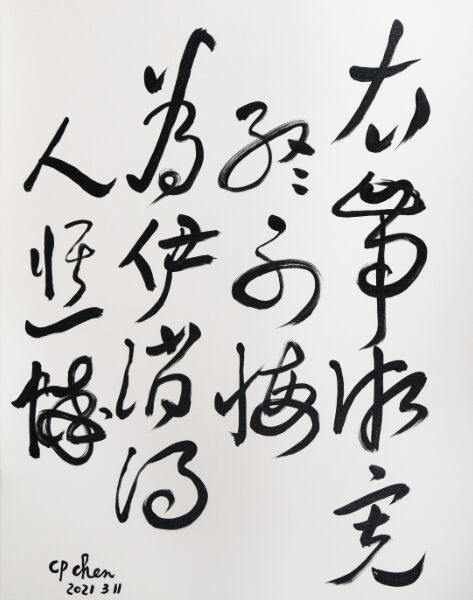 衣帶漸寬
終不悔
為伊消得
人憔悴
CP chen
2021 3 11